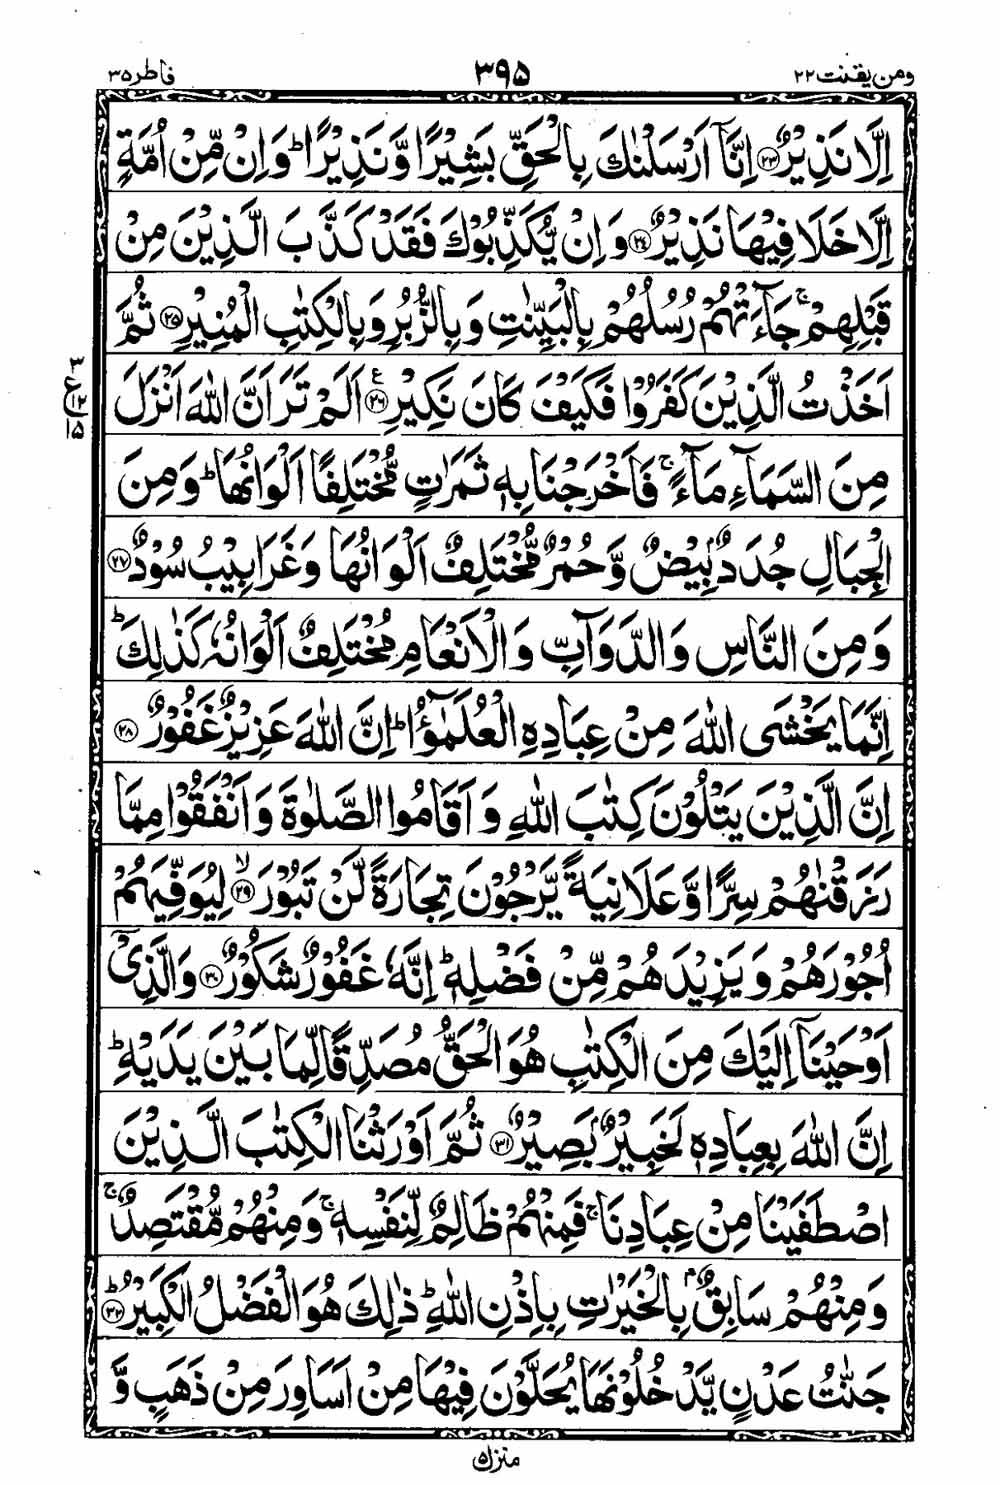 ومن یقنت ۲۲
۳۹۵
فاطر ۳۵
اِلَّا نَذِیْرٌ ﴿۲۳﴾ اِنَّاۤ اَرْسَلْنٰكَ بِالْحَقِّ بَشِیْرًا وَّ نَذِیْرًا ؕ وَ اِنْ مِّنْ اُمَّةٍ
اِلَّا خَلَا فِیْهَا نَذِیْرٌ ﴿۲۴﴾ وَ اِنْ یُّكَذِّبُوْكَ فَقَدْ كَذَّبَ الَّذِیْنَ مِنْ
قَبْلِهِمْ ۚ جَآءَتْهُمْ رُسُلُهُمْ بِالْبَیِّنٰتِ وَ بِالزُّبُرِ وَ بِالْكِتٰبِ الْمُنِیْرِ ﴿۲۵﴾ ثُمَّ
اَخَذْتُ الَّذِیْنَ كَفَرُوْا فَكَیْفَ كَانَ نَكِیْرِ ﴿۲۶﴾ ع اَلَمْ تَرَ اَنَّ اللّٰهَ اَنْزَلَ
۳
ع
۱۲
۱۵
مِنَ السَّمَآءِ مَآءً ۚ فَاَخْرَجْنَا بِهٖ ثَمَرٰتٍ مُّخْتَلِفًا اَلْوَانُهَا ؕ وَ مِنَ
الْجِبَالِ جُدَدٌۢ بِیْضٌ وَّ حُمْرٌ مُّخْتَلِفٌ اَلْوَانُهَا وَ غَرَابِیْبُ سُوْدٌ ﴿۲۷﴾
وَ مِنَ النَّاسِ وَ الدَّوَآبِّ وَ الْاَنْعَامِ مُخْتَلِفٌ اَلْوَانُهٗ كَذٰلِكَ ؕ
اِنَّمَا یَخْشَی اللّٰهَ مِنْ عِبَادِهِ الْعُلَمٰٓؤُا ؕ اِنَّ اللّٰهَ عَزِیْزٌ غَفُوْرٌ ﴿۲۸﴾
اِنَّ الَّذِیْنَ یَتْلُوْنَ كِتٰبَ اللّٰهِ وَ اَقَامُوا الصَّلٰوةَ وَ اَنْفَقُوْا مِمَّا
رَزَقْنٰهُمْ سِرًّا وَّ عَلَانِیَةً یَّرْجُوْنَ تِجَارَةً لَّنْ تَبُوْرَ ﴿۲۹﴾ ۙ لِیُوَفِّیَهُمْ
اُجُوْرَهُمْ وَ یَزِیْدَهُمْ مِّنْ فَضْلِهٖ ؕ اِنَّهٗ غَفُوْرٌ شَكُوْرٌ ﴿۳۰﴾ وَ الَّذِیْۤ
اَوْحَیْنَاۤ اِلَیْكَ مِنَ الْكِتٰبِ هُوَ الْحَقُّ مُصَدِّقًا لِّمَا بَیْنَ یَدَیْهِ ؕ
اِنَّ اللّٰهَ بِعِبَادِهٖ لَخَبِیْرٌۢ بَصِیْرٌ ﴿۳۱﴾ ثُمَّ اَوْرَثْنَا الْكِتٰبَ الَّذِیْنَ
اصْطَفَیْنَا مِنْ عِبَادِنَا ۚ فَمِنْهُمْ ظَالِمٌ لِّنَفْسِهٖ ۚ وَ مِنْهُمْ مُّقْتَصِدٌ ۚ
وَ مِنْهُمْ سَابِقٌۢ بِالْخَیْرٰتِ بِاِذْنِ اللّٰهِ ؕ ذٰلِكَ هُوَ الْفَضْلُ الْكَبِیْرُ ﴿۳۲﴾ ؕ
جَنّٰتُ عَدْنٍ یَّدْخُلُوْنَهَا یُحَلَّوْنَ فِیْهَا مِنْ اَسَاوِرَ مِنْ ذَهَبٍ وَّ
منزل ۵